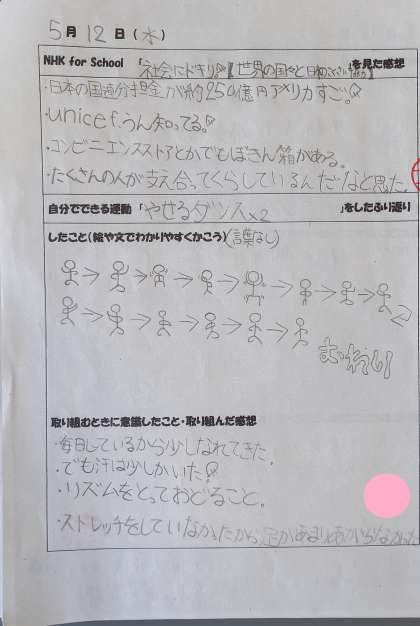 5月12日(水)
NHK for School 「社会にドキリ」【世界の国々と日本 を見た感想
・日本の国連分担金が約250億円アメリカすご。
・unicefうん知ってる。
・コンビニエンスストアとかでもぼきん箱がある。
・たくさんの人が支え合ってくらしているんだなと思った。
自分でできる運動 「やせるダンス×2 」をしたふり返り
したこと(絵や文でわかりやすくかこう)(言葉なし)
取り組むときに意識したこと・取り組んだ感想
・毎日しているから少しなれてきた。
・でも汗は少しかいた。
・リズムをとっておどること。
・ストレッチをしていなかったから足があまりあがらなかった